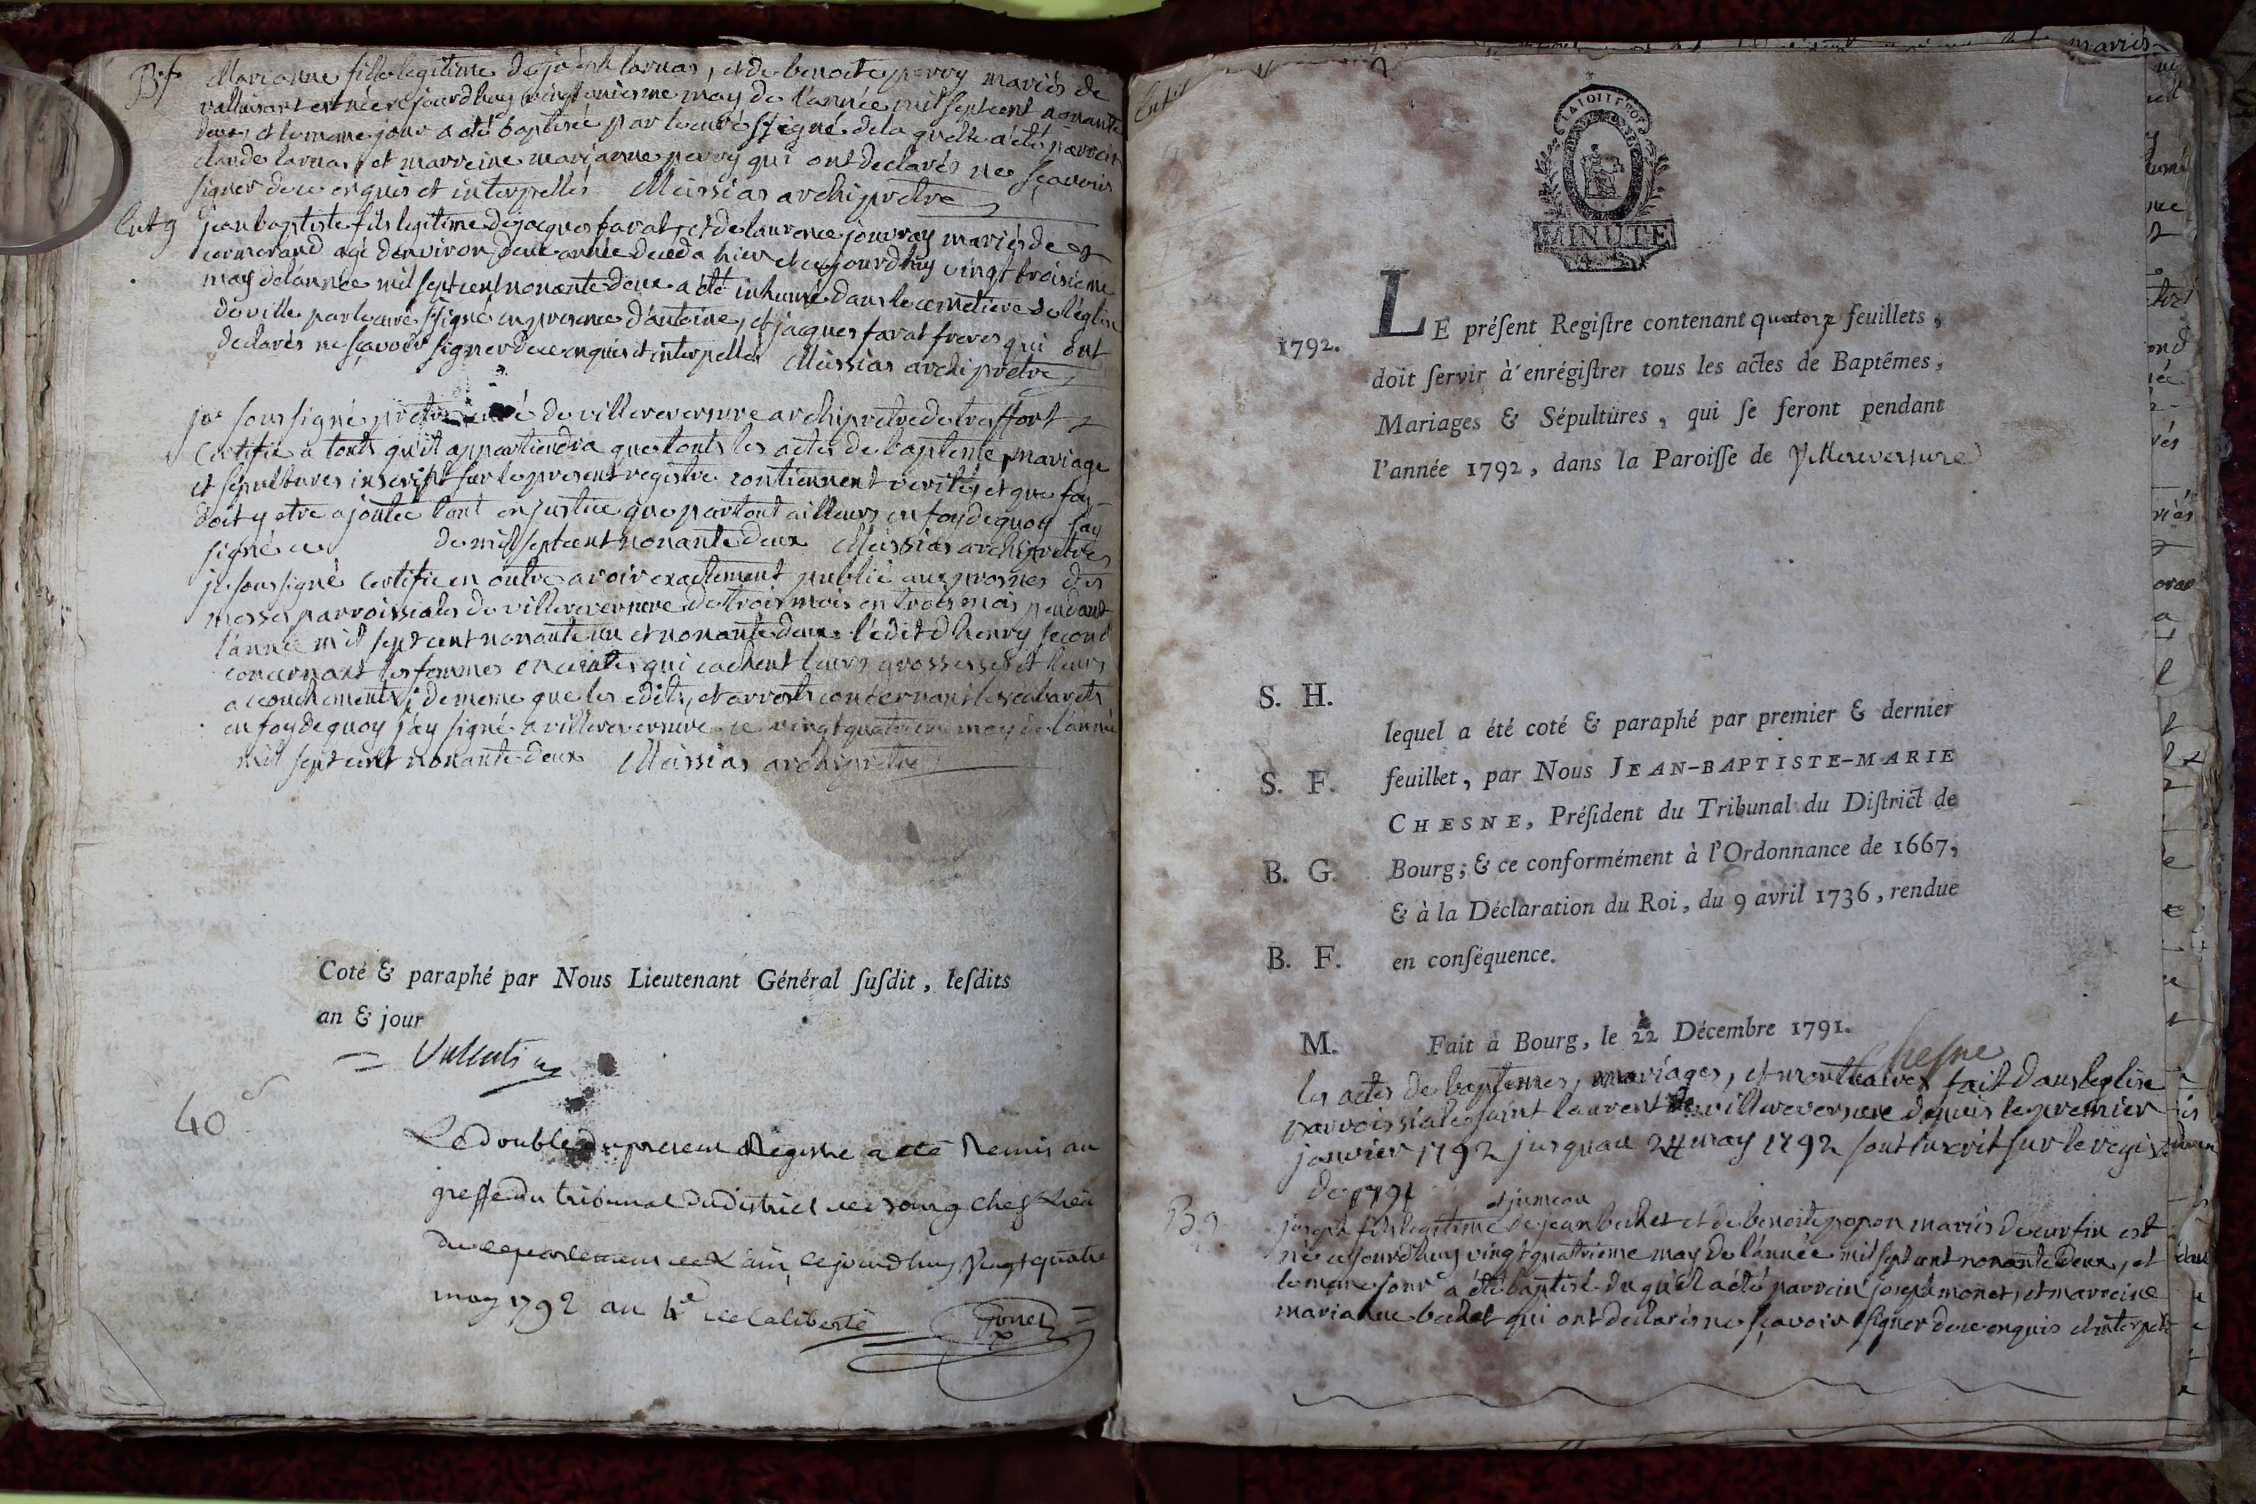 B. f.
Marianne fille legitime de joseph larnas, et de benoite perry mariés de
est née ce jourdhuy vingt unieme may de l'année mil sept cent nonante
deux et le meme jour a été baptisée par le curé ssigné de la quelle a été parrein
claude larnas, et marreine marianne perry qui ont declarés ne sçavoir
signer de ce enquis et interpellés Messias archipretre
Ent g
jean baptiste fils legitime de jacques favat, et de laurence jouvray mariés de
cormorand agé d'environ deux année deceda hier et ce jourdhuy vingt troisieme
may de l'année mil sept cent nonante deux a été inhumé dans le cemetiere de l'église
de ville par le curé ssigné en presence d'antoine, et jacques favat freres qui ont
declarés ne sçavoir signer de ce enquis et interpellés Messias archipretre
je soussigné pretre curé de villereversure archipretre de treffort
Certifie a touts qu'il appartiendra que touts les actes de bapteme, mariage
et sépultures inscript sur le present registre contiennent verité, et que foy
doit y etre ajoutée tant en justice que partout ailleurs en foy de quoy j'ay
signé ce de mil sept cent nonante deux Messias archipretre
je soussigné certifie en outre avoir exactement publié aux prosnes des
messes parroissiales de villereversure de trois mois en trois mois pendant
l'année mil sept cent nonante un et nonante deux l'édit d'henry second
concernant les femmes enceintes qui cachent leurs grossesses et leurs
accouchements, de meme que les edits, et arrests concernant les cabarets
en foy de quoy j'ay signé a villereversure ce vingt quatrieme may de l'année
mil sept cent nonante deux Messias archipretre
Coté & paraphé par Nous Lieutenant Général ſuſdit, leſdits
an & jour
40
Le double du present Registre a eté Remis au
greffe du tribunal du district de Bourg chef lieu
du departement de L'ain, ce jourd huy vingt quatre
may 1792 an 4e de la liberté
MINUTE
1792.
LE préſent Regiſtre contenant quatorze feuillets,
doit ſervir à enrégiſtrer tous les actes de Baptêmes,
Mariages & Sépultures, qui ſe feront pendant
l'année 1792, dans la Paroiſſe de Villereversure
S. H.
lequel a été coté & paraphé par premier & dernier
S. F. feuillet, par Nous JEAN-BAPTISTE-MARIE
CHESNE, Préſident du Tribunal du Diſtrict de
B. G. Bourg; & ce conformément à l'Ordonnance de 1667,
& à la Déclaration du Roi, du 9 avril 1736, rendue
B. F. en conſéquence.
M. Fait à Bourg, le 22 Décembre 1791.
Chesne
les actes de baptemes, mariages, et mortuaires fait dans leglise
parroissiale saint laurent de villereversure depuis le premier
janvier 1792 jusquau 24 may 1792 sont inscrit sur le registre
de 1791
B g
et jumeau
joseph fils legitime de jean bechet et de benoite popon mariés de curfin est
né ce jourdhuy vingt quatrieme may de l'année mil sept cent nonante deux, et
le meme jour a été baptisé du quel a été parrein joseph monet, et marreine
marianne bechet qui ont declarés ne sçavoir signer de ce enquis et interpellés